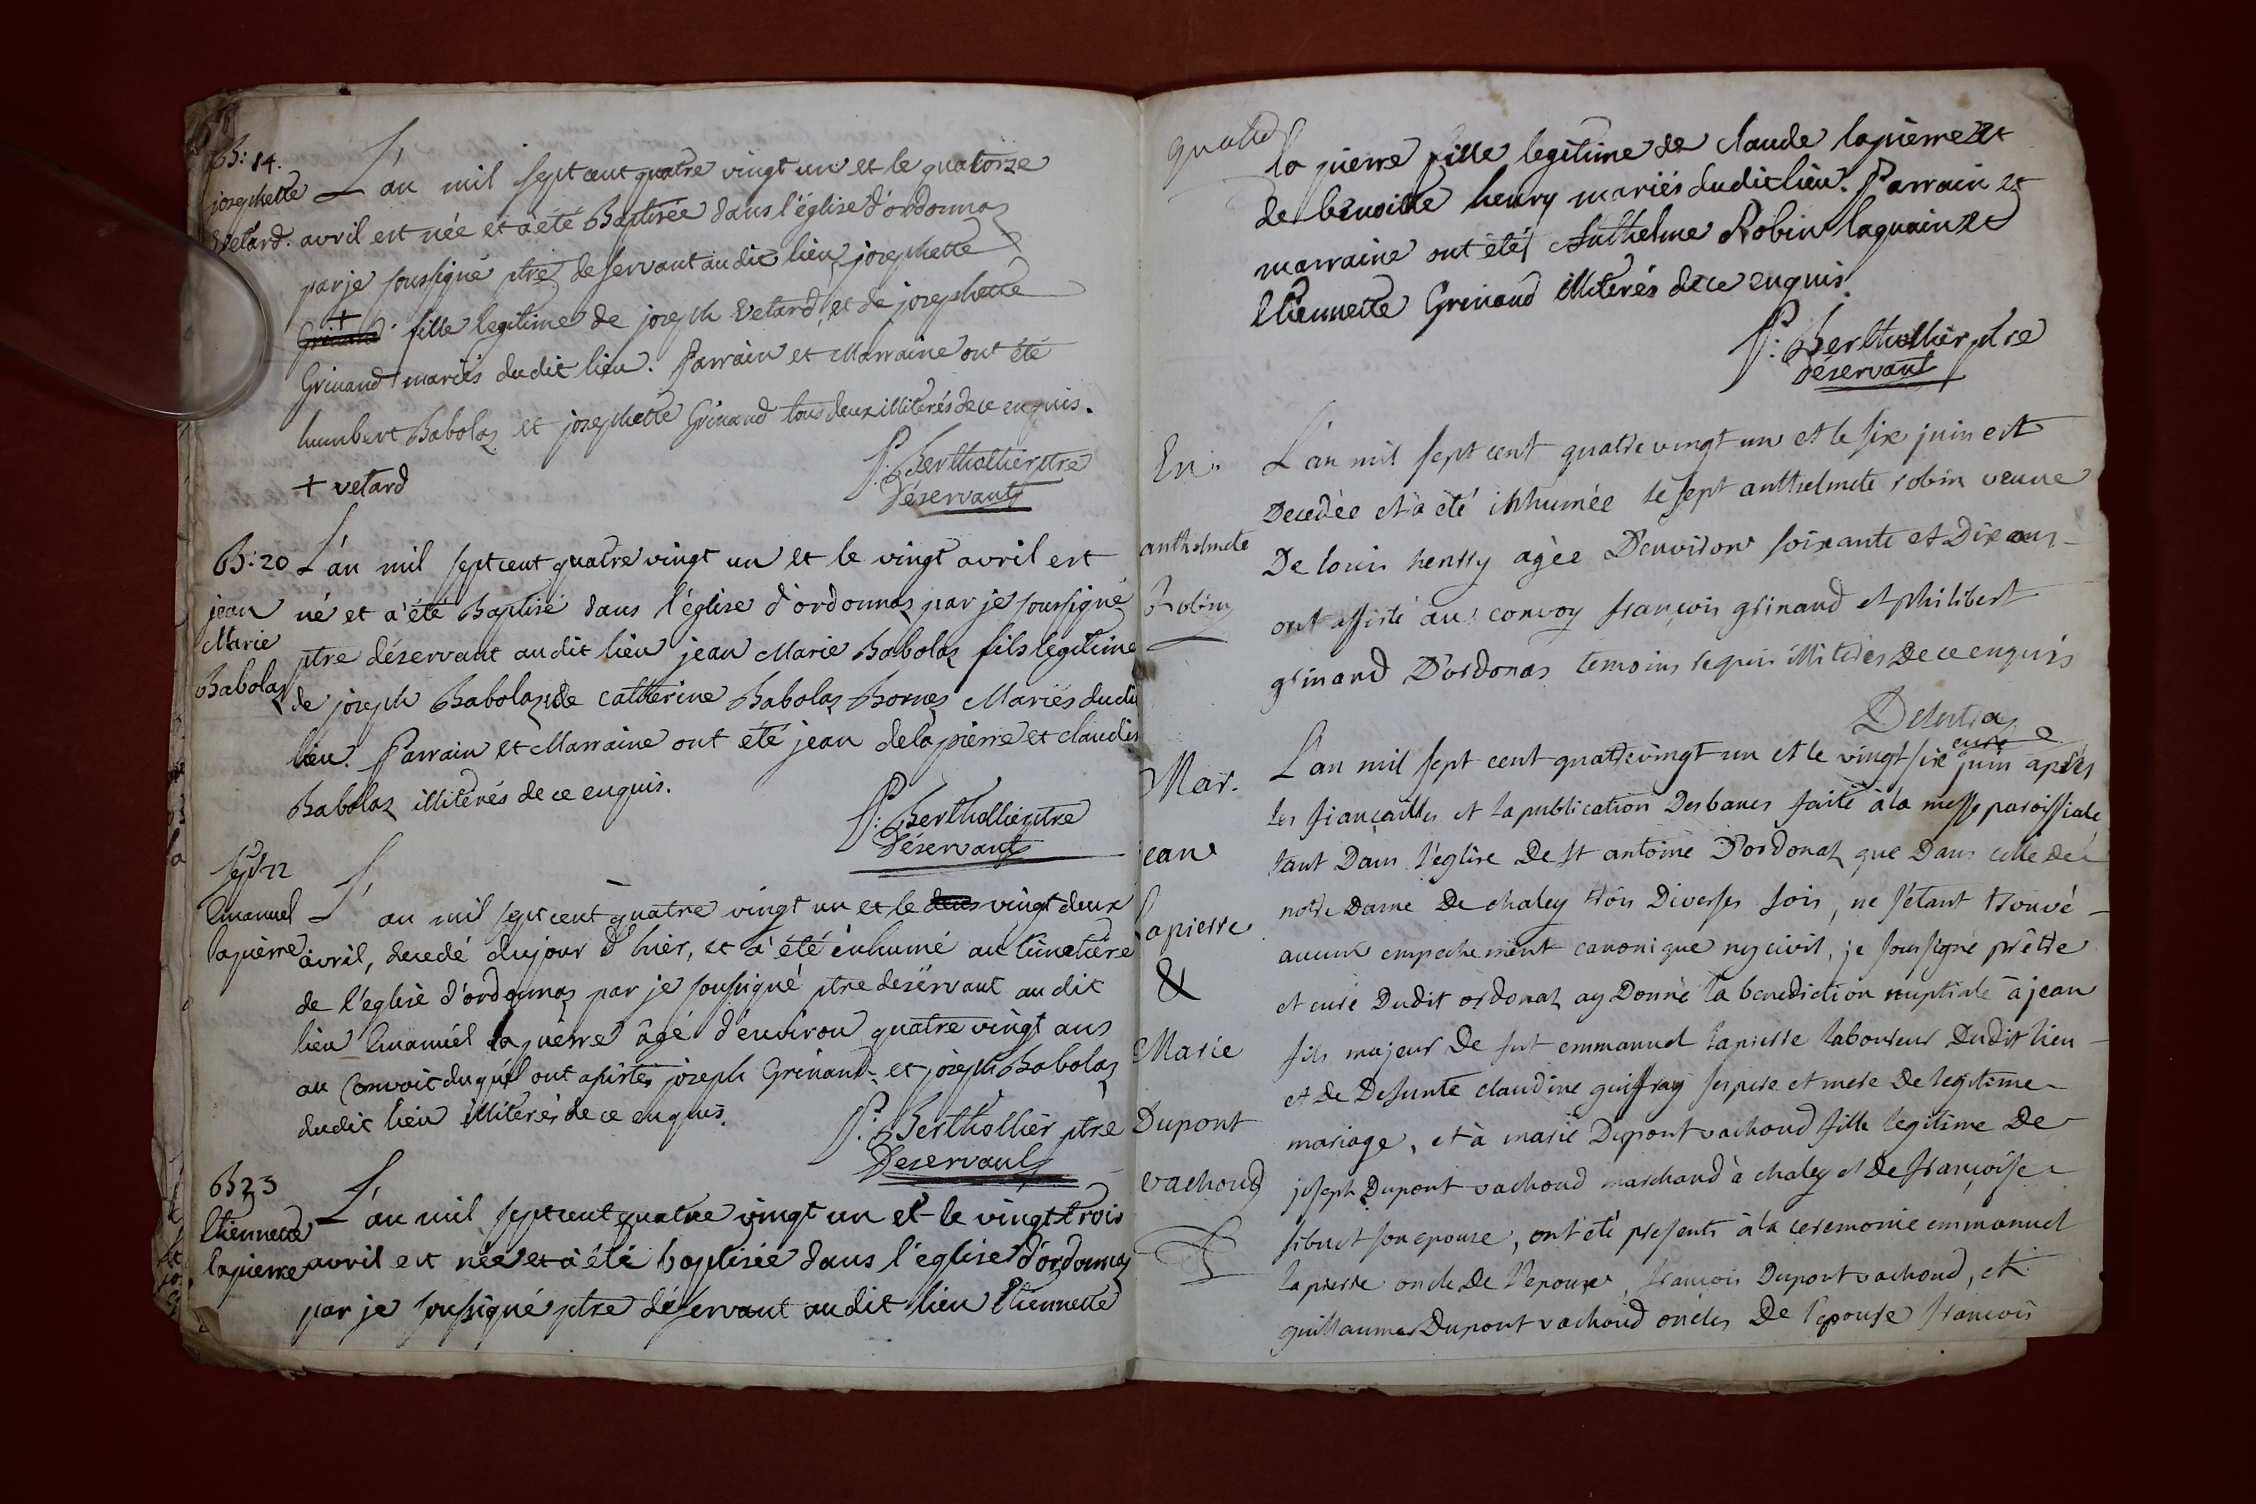 B: 14.
josephette
Vetard.
L'an mil sept cent quatre vingt un et le quatorze
avril est née et a été Baptisée dans l'église d'ordonnaz
par je soussigné ptre desservant au dit lieu josephette
+
Grinand fille legitime de joseph Vetard, et de josephette
Grinand mariés dudit lieu. Parrain et Marraine ont été
humbert Babolaz et josephette Grinand tous deux illiterés de ce enquis.
P: Berthollier ptre
Déservant
+ vetard
B: 20
jean
Marie
Babolaz
L'an mil sept cent quatre vingt un et le vingt avril est
né et a été Baptisé dans l'église d'ordonnaz par je soussigné
ptre déservant au dit lieu jean Marie Babolaz fils legitime
de joseph Babolaz et de Catherine Babolaz Bornez Mariés dudit
lieu. Parrain et Marraine ont été jean delapierre et claudis
Babolaz illiterés de ce enquis.
P: Berthollier ptre
Déservant
Sept 22
Emanuel
lapierre
L'an mil sept cent quatre vingt un et le deux vingt deux
avril, decedé du jour d'hier, et a été inhumé au cimetiere
de l'eglise d'ordonnaz par je soussigné ptre deservant au dit
lieu Emanuel lapierre âgé d'environ quatre vingt ans
au Convoit duquel ont asistes joseph Grinand et joseph Babolaz
dudit lieu illiterés de ce enquis.
P: Berthollier ptre
Deservant
B 23
Etiennette
lapierre
L'an mil sept cent quatre vingt un et le vingt trois
avril est née et a été baptisée dans l'église d'ordonnaz
par je soussigné ptre déservant au dit lieu Etiennette
la pierre fille legitime de claude lapierre et
de benoitte henry mariés dudit lieu. Parrain et
marraine ont étés Anthelme Robin laguain et
Etiennette Grinand illiterés de ce enquis.
P: Berthollier ptre
Déservant
En.
anthelmete
Robin
L'an mil sept cent quatre vingt un et le six juin est
Decedée et a été inhumée le sept anthelmete robin veuve
De louis henrry agée D'environ soixante et Dix ans
ont assisté au convoy françois grinand et philibert
grinand D'ordonas temoins requis illiterés De ce enquis
curé
Mar.
jean
lapierre
&
Marie
Dupont
vachoud
L'an mil sept cent quatre vingt un et le vingt six juin après
les fiançailles et la publication Des bancs faite à la messe paroissiale
tant Dans l'église De St antoine D'ordonaz que Dans celle de
notre Dame De chaley trois Diverses fois, ne s'étant trouvé
aucun empechement canonique ny civil, je soussigné prêtre
et curé Dudit ordonaz ay Donné la benediction nuptiale à jean
fils majeur De fut emmanuel lapierre laboureur Dudit lieu
et De Defunte claudine guiffray ses pere et mere De legitime
mariage, et à marie Dupont vachoud fille legitime De
joseph Dupont vachoud marchand à chaley et De françoise
sibuet son epouse, ont été presents à la ceremonie emmanuel
lapierre oncle De l'epoux, françois Dupont vachoud, et
guillaume Dupont vachoud oncles De l'epouse françois